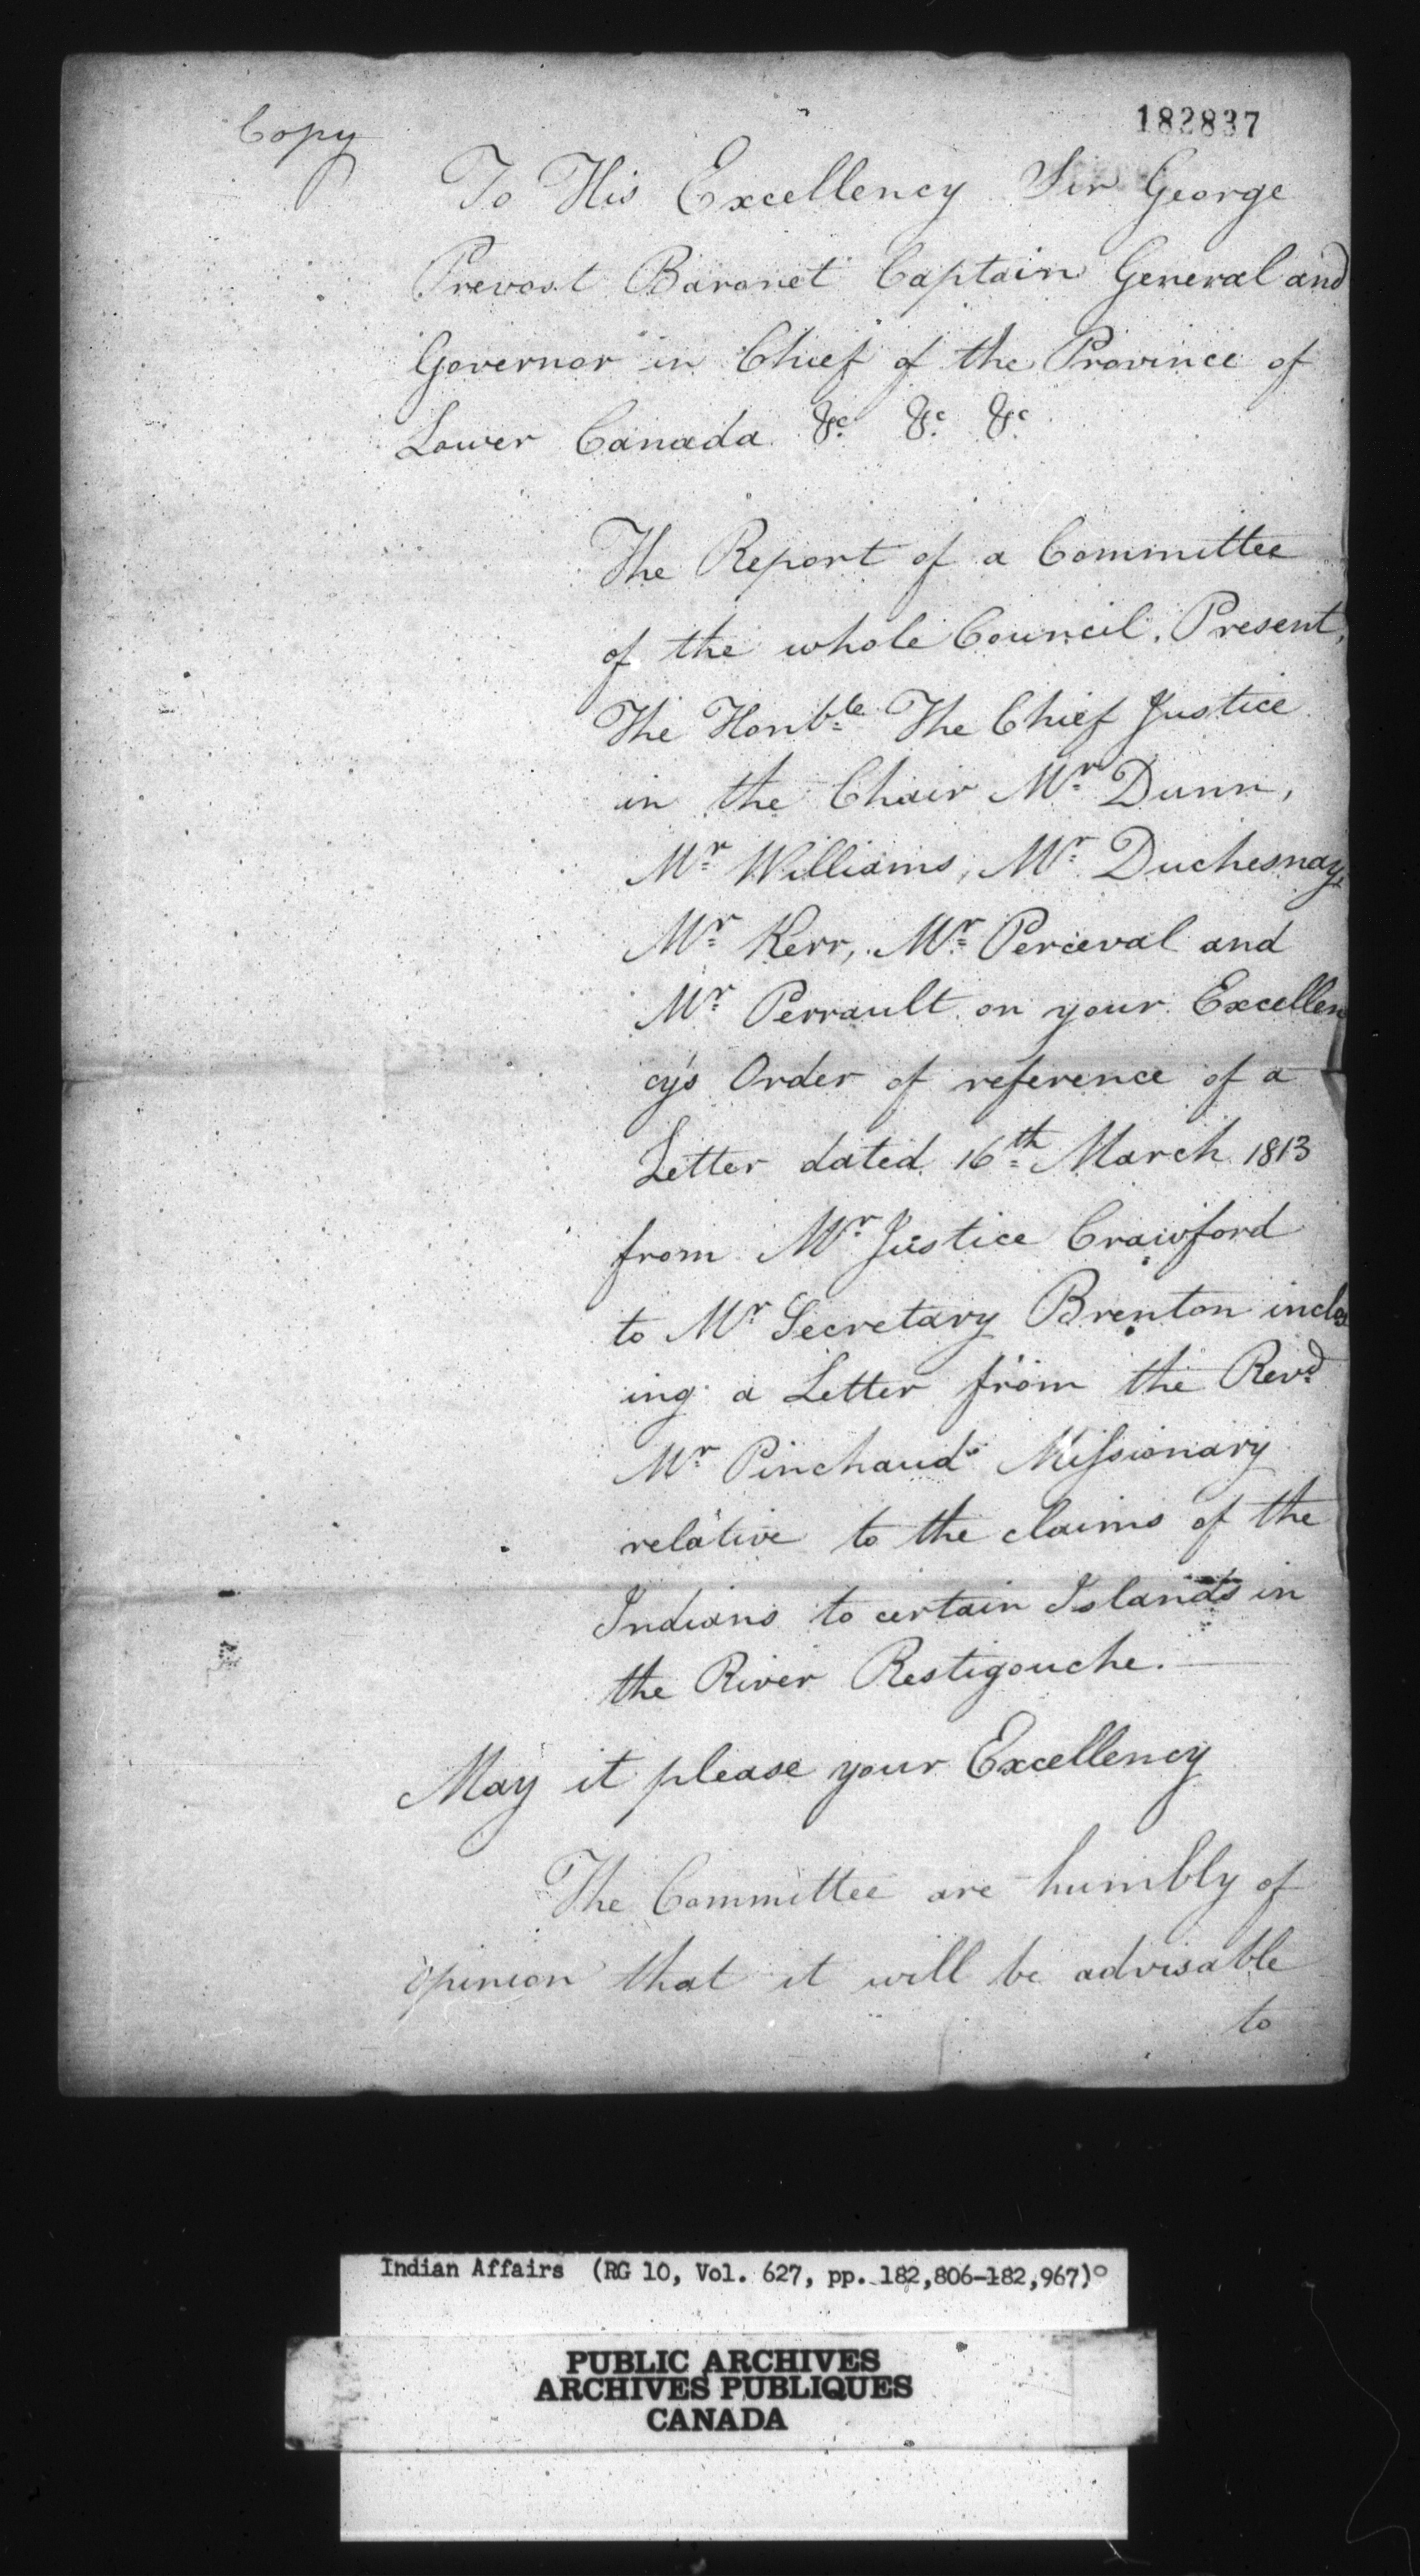 Copy
182837
To His Excellency Sir George
Prevost Baronet Captain General and
Governor in Chief of the Province of
Lower Canada &c. &c. &c.
The Report of a Committee
of the whole Council. Present,
The Honble. The Chief Justice
in the Chair Mr. Dunn,
Mr. Williams, Mr. Duchesnay,
Mr. Kerr, Mr. Perceval and
Mr. Perrault on your Excellen
cy's Order of reference of a
Letter dated 16th March 1813
from Mr. Justice Crawford
to Mr Secretary Brenton inclos
ing a Letter from the Revd.
Mr Pinchaud Missionary
relative to the claims of the
Indians to certain Islands in
the River Restigouche.
May it please your Excellency
The Committee are humbly of
opinion that it will be advisable
to
Indian Affairs (RG 10, Vol. 627, pp. 182,806-182,967)
PUBLIC ARCHIVES
ARCHIVES PUBLIQUES
CANADA